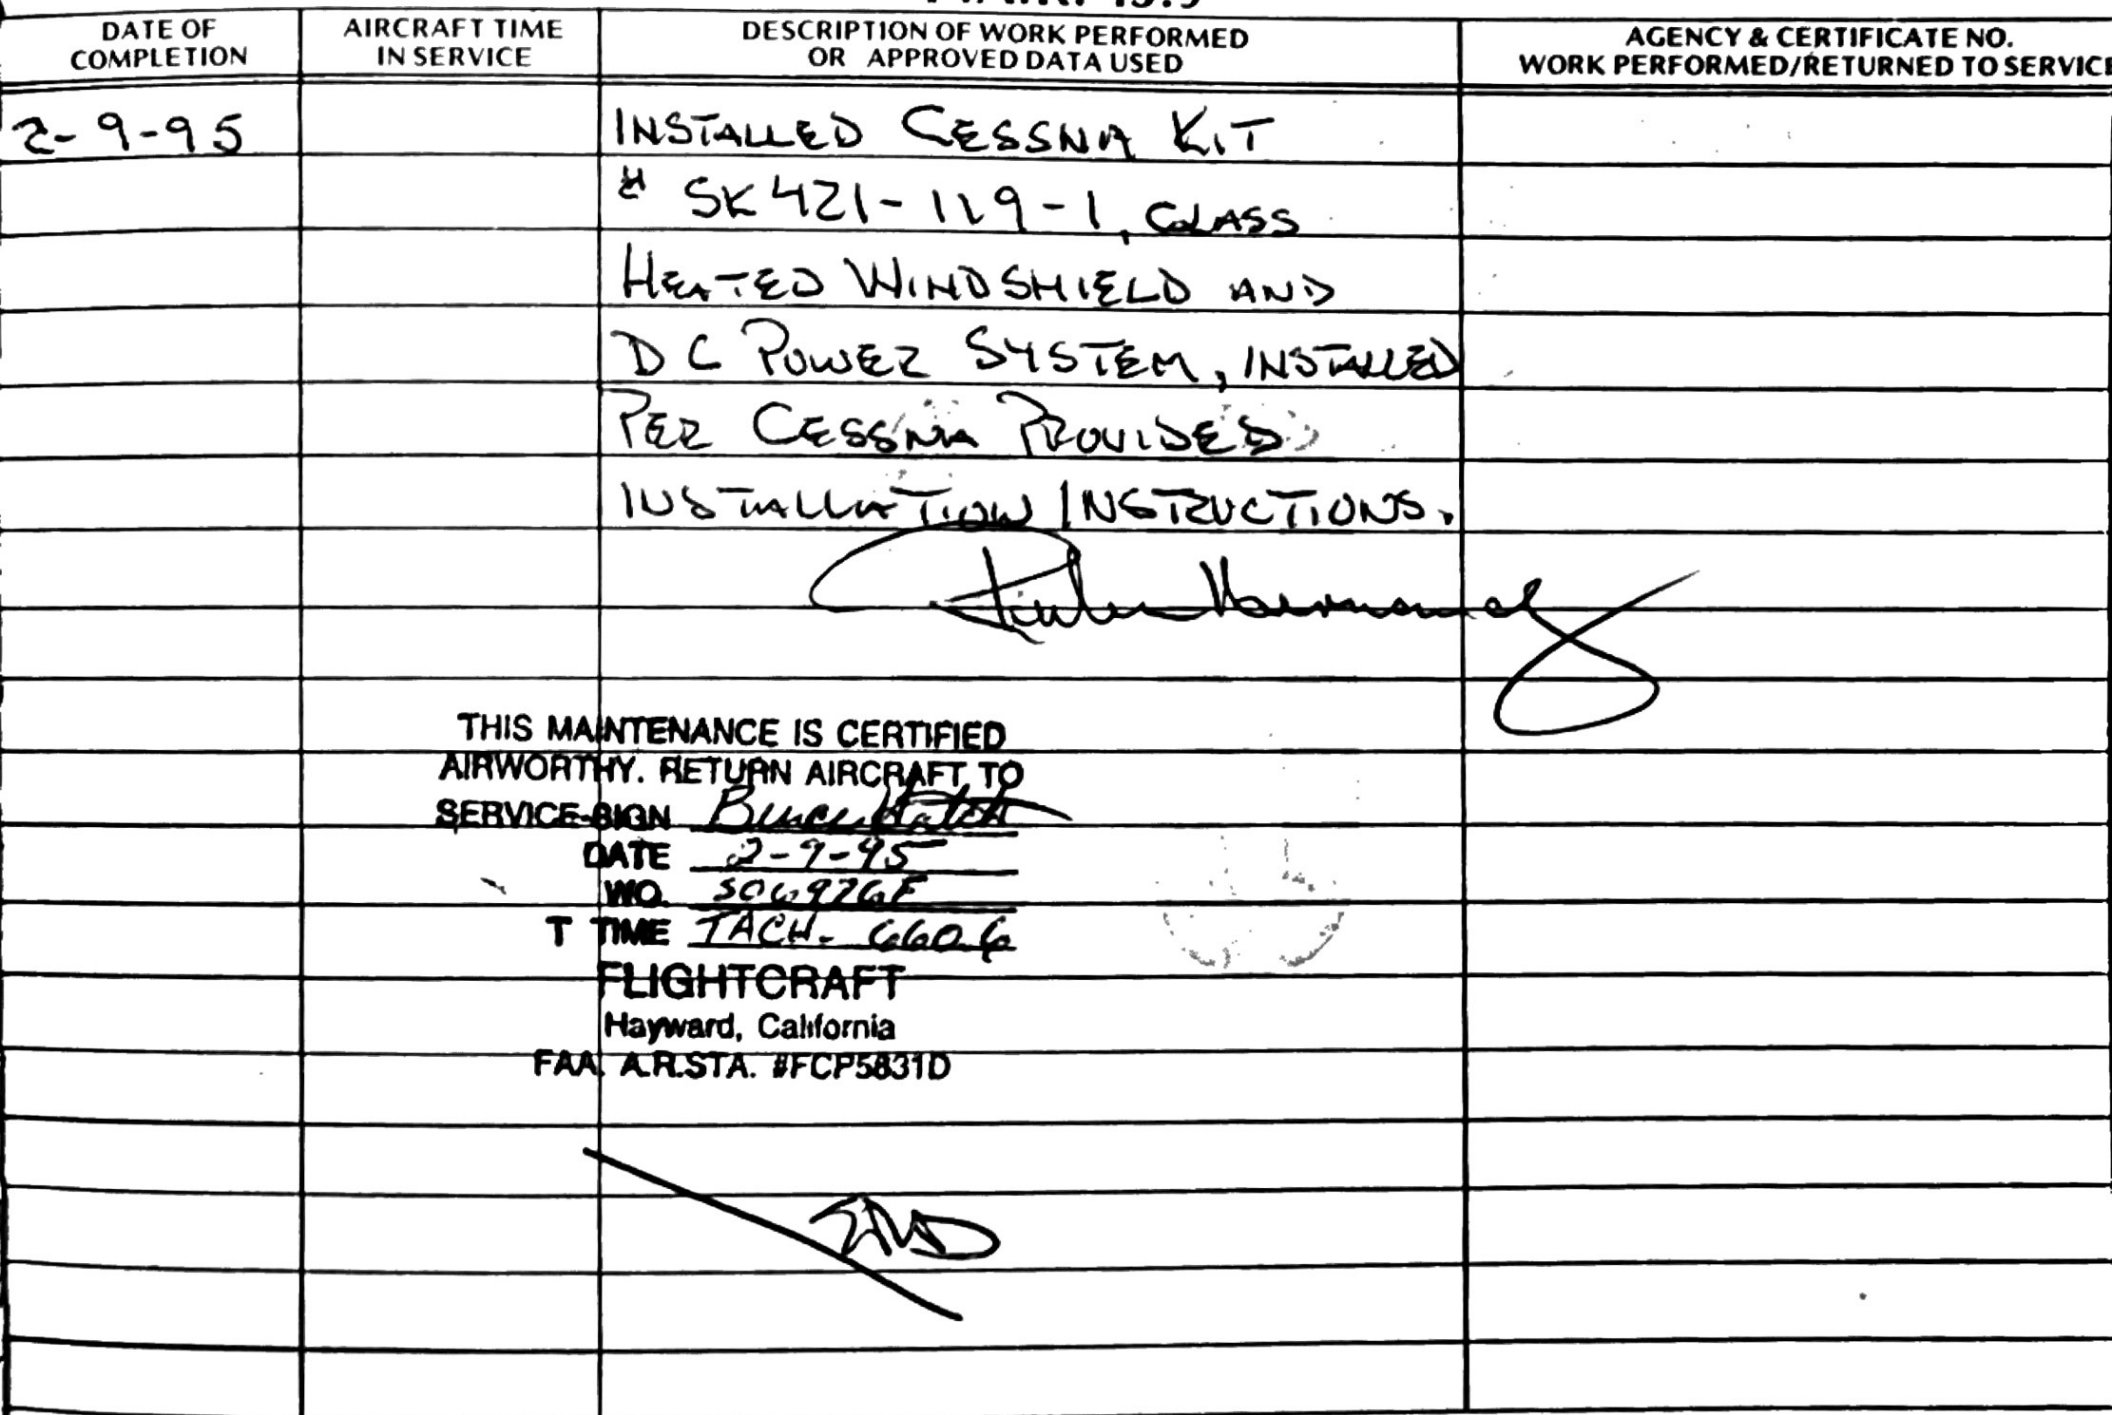 DATE OF COMPLETION
AIRCRAFT TIME IN SERVICE
DESCRIPTION OF WORK PERFORMED OR APPROVED DATA USED
AGENCY & CERTIFICATE NO. WORK PERFORMED/RETURNED TO SERVICE
2-9-95 INSTALLED CESSNA KIT
# SK421-119-1, GLASS
HEATED WINDSHIELD AND
DC POWER SYSTEM, INSTALLED
PER CESSNA PROVIDED
INSTALLATION INSTRUCTIONS.
THIS MAINTENANCE IS CERTIFIED
AIRWORTHY. RETURN AIRCRAFT TO
SERVICE-SIGN
DATE 2-9-95
WO.
T TIME TACH- 660.6
FLIGHTCRAFT
Hayward, California
FAA A.R.STA. #FCP5831D
END